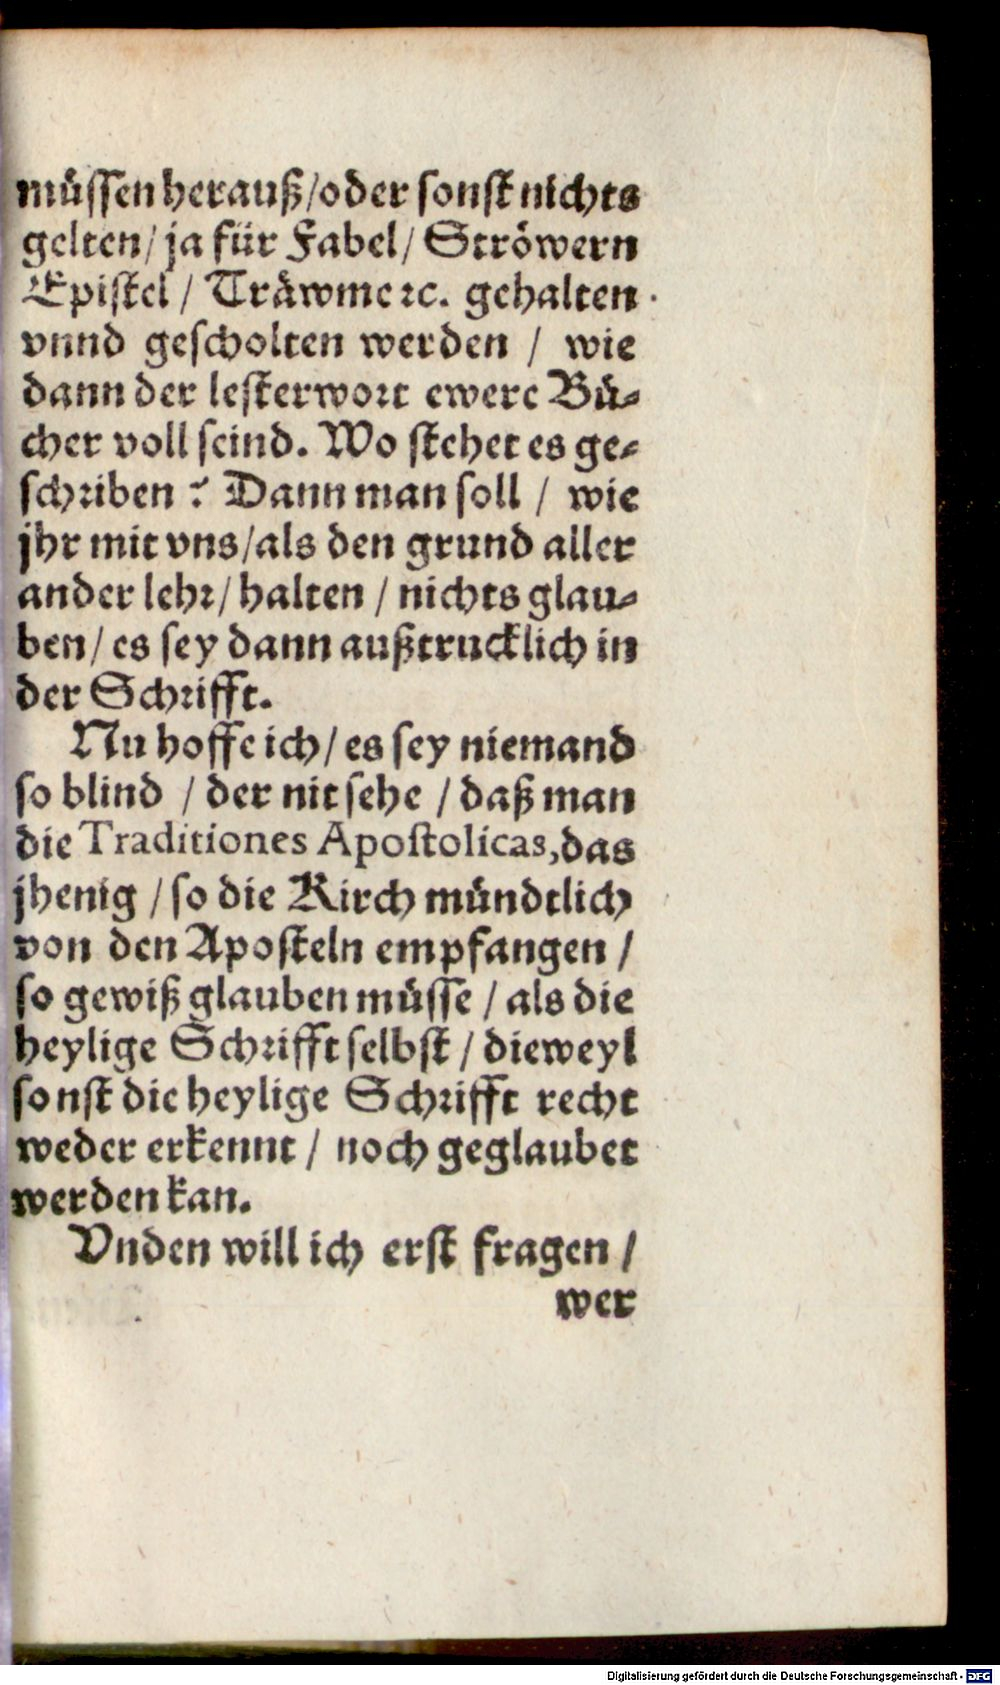 müssen herauß/oder sonst nichts
gelten/ ja für Fabel/ Ströwern
Epistel / Träwme ꝛc. gehalten
vnnd gescholten werden / wie
dann der lesterwort ewere Bü-
cher voll seind. Wo stehet es ge-
schriben ? Dann man soll / wie
jhr mit vns/als den grund aller
ander lehr/ halten / nichts glau-
ben/ es sey dann außtrucklich in
der Schrifft.
Nu hoffe ich/ es sey niemand
so blind / der nit sehe / daß man
die Traditiones Apostolicas,das
jhenig / so die Kirch mündtlich
von den Aposteln empfangen /
so gewiß glauben müsse / als die
heylige Schrifft selbst / dieweyl
sonst die heylige Schrifft recht
weder erkennt / noch geglaubet
werden kan.
Vnden will ich erst fragen /
wer
Digitalisierung gefördert durch die Deutsche Forschungsgemeinschaft - DFG